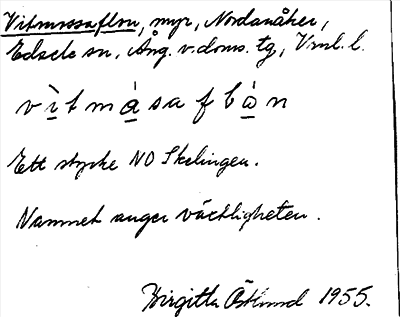 Vitmossaflon, myr, Nordanåker,
Edsele sn, Ång. v. doms. tg, Vnl. l.
vìtmásaflòn
Ett stycke NO Skelingen.
Namnet anger växtligheten.
Birgitta Östlund 1955.